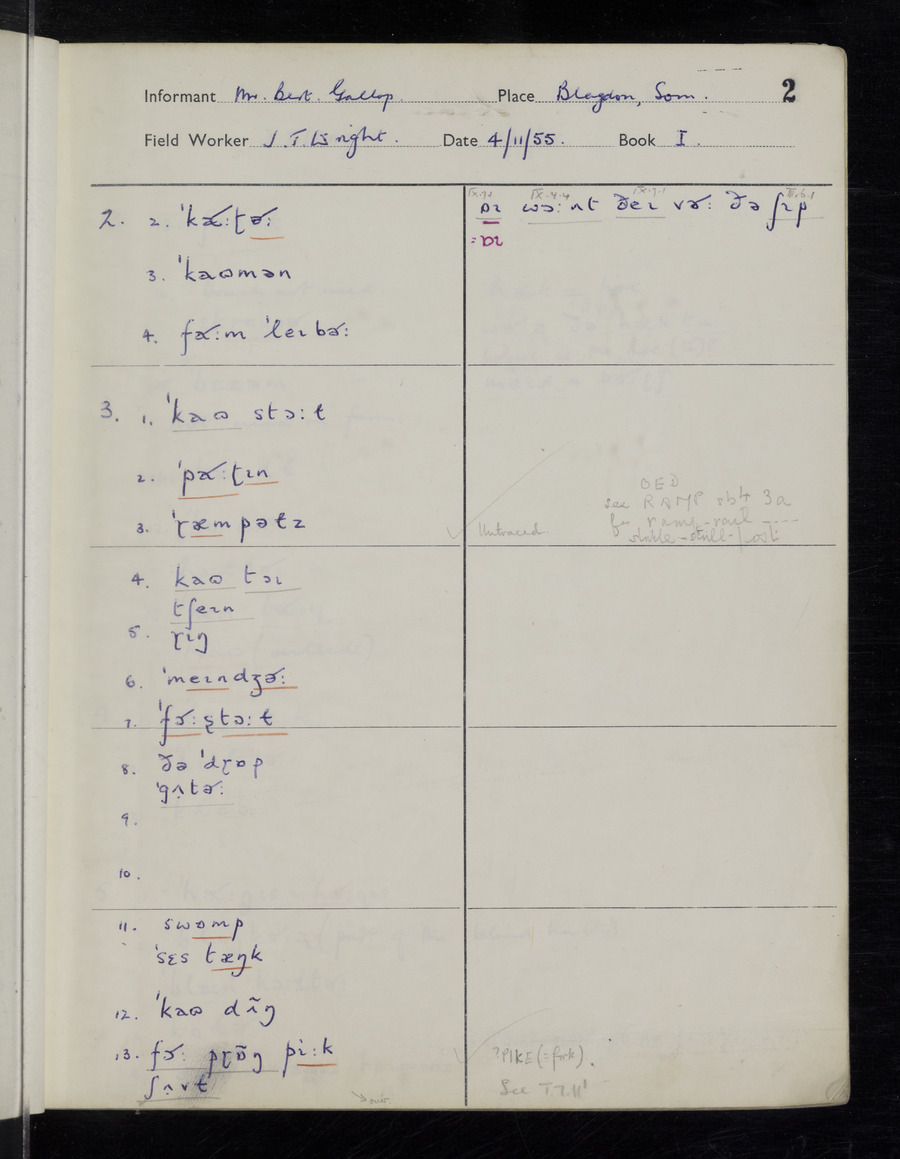 2
Informant Mr. Bert. Gallop. Place Blagdon, Som.
Field Worker J. T. Wright. Date 4/11/55. Book I.
2. 2. ˈkɚːʈɚː
3. ˈkaʊmən
4. fɚːm ˈleɪbɚː
3. 1. ˈkaʊ stɔːt
2. ˈpɚːʈɪn
3. ˈɽæmpəts
4. kaʊ tɔɪ
tʃeɪn
5. ɽɪŋ
6. ˈmeɪndʒɚː
7. ˈfɔ˞ːʂtɔːt
8. ðə ˈdɽɒp
ˈgʌtɚː
9.
10.
11. swɒmp
ˈsɛs tæŋk
12. ˈkaʊ dʌ̃ŋ
13. fɔ˞ː pɽɒ̃ŋ piːk
ʃʌvt
over
IX.4.4 IX.7.1
ɒɪ wɔːnt ðeɪ vɚː ðə ʃɪp
=ɒɪ
Untraced.
OED
see RAMP sb4 3a
for ramp-rail ----
stable-stall-post
?PIKE (=fork).
See I.7.11